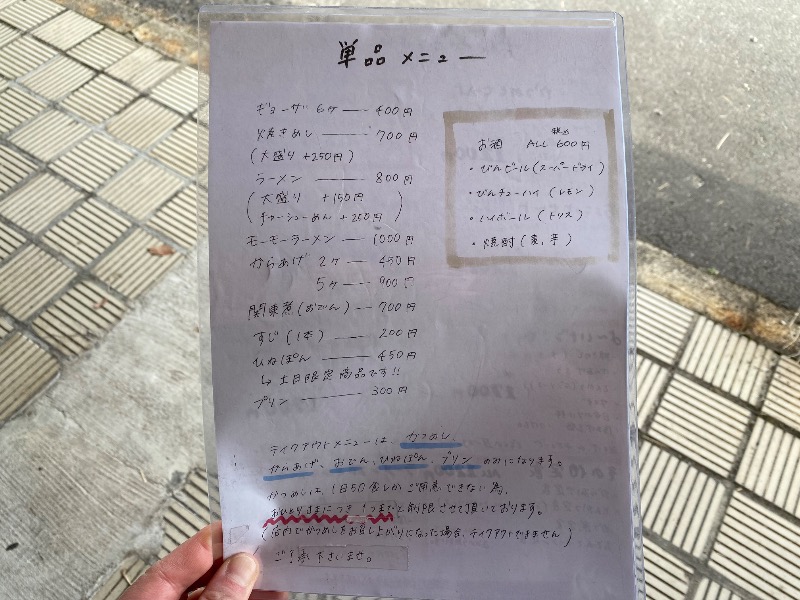 単品メニュー
ギョーザ 6ヶ — 400円
焼きめし — 700円
(大盛り +250円)
ラーメン — 800円
(大盛り +150円
チャーシューめん +200円)
モーモーラーメン — 1000円
からあげ 2ヶ — 450円
5ヶ — 900円
関東煮(おでん) — 700円
すじ(1本) — 200円
ひねぽん — 450円
↳ 土日限定商品です!!
プリン — 300円
お酒 ALL 税込600円
・びんビール(スーパードライ)
・びんチューハイ(レモン)
・ハイボール(トリス)
・焼酎(麦、芋)
テイクアウトメニューは、かつめし、
からあげ、おでん、ひねぽん、プリン のみになります。
かつめしは、1日50食しかご用意できない為、
おひとりさまにつき1つまでと制限させて頂いております。
(店内でかつめしをお召し上がりになった場合、テイクアウトできません)
ご了承下さいませ。